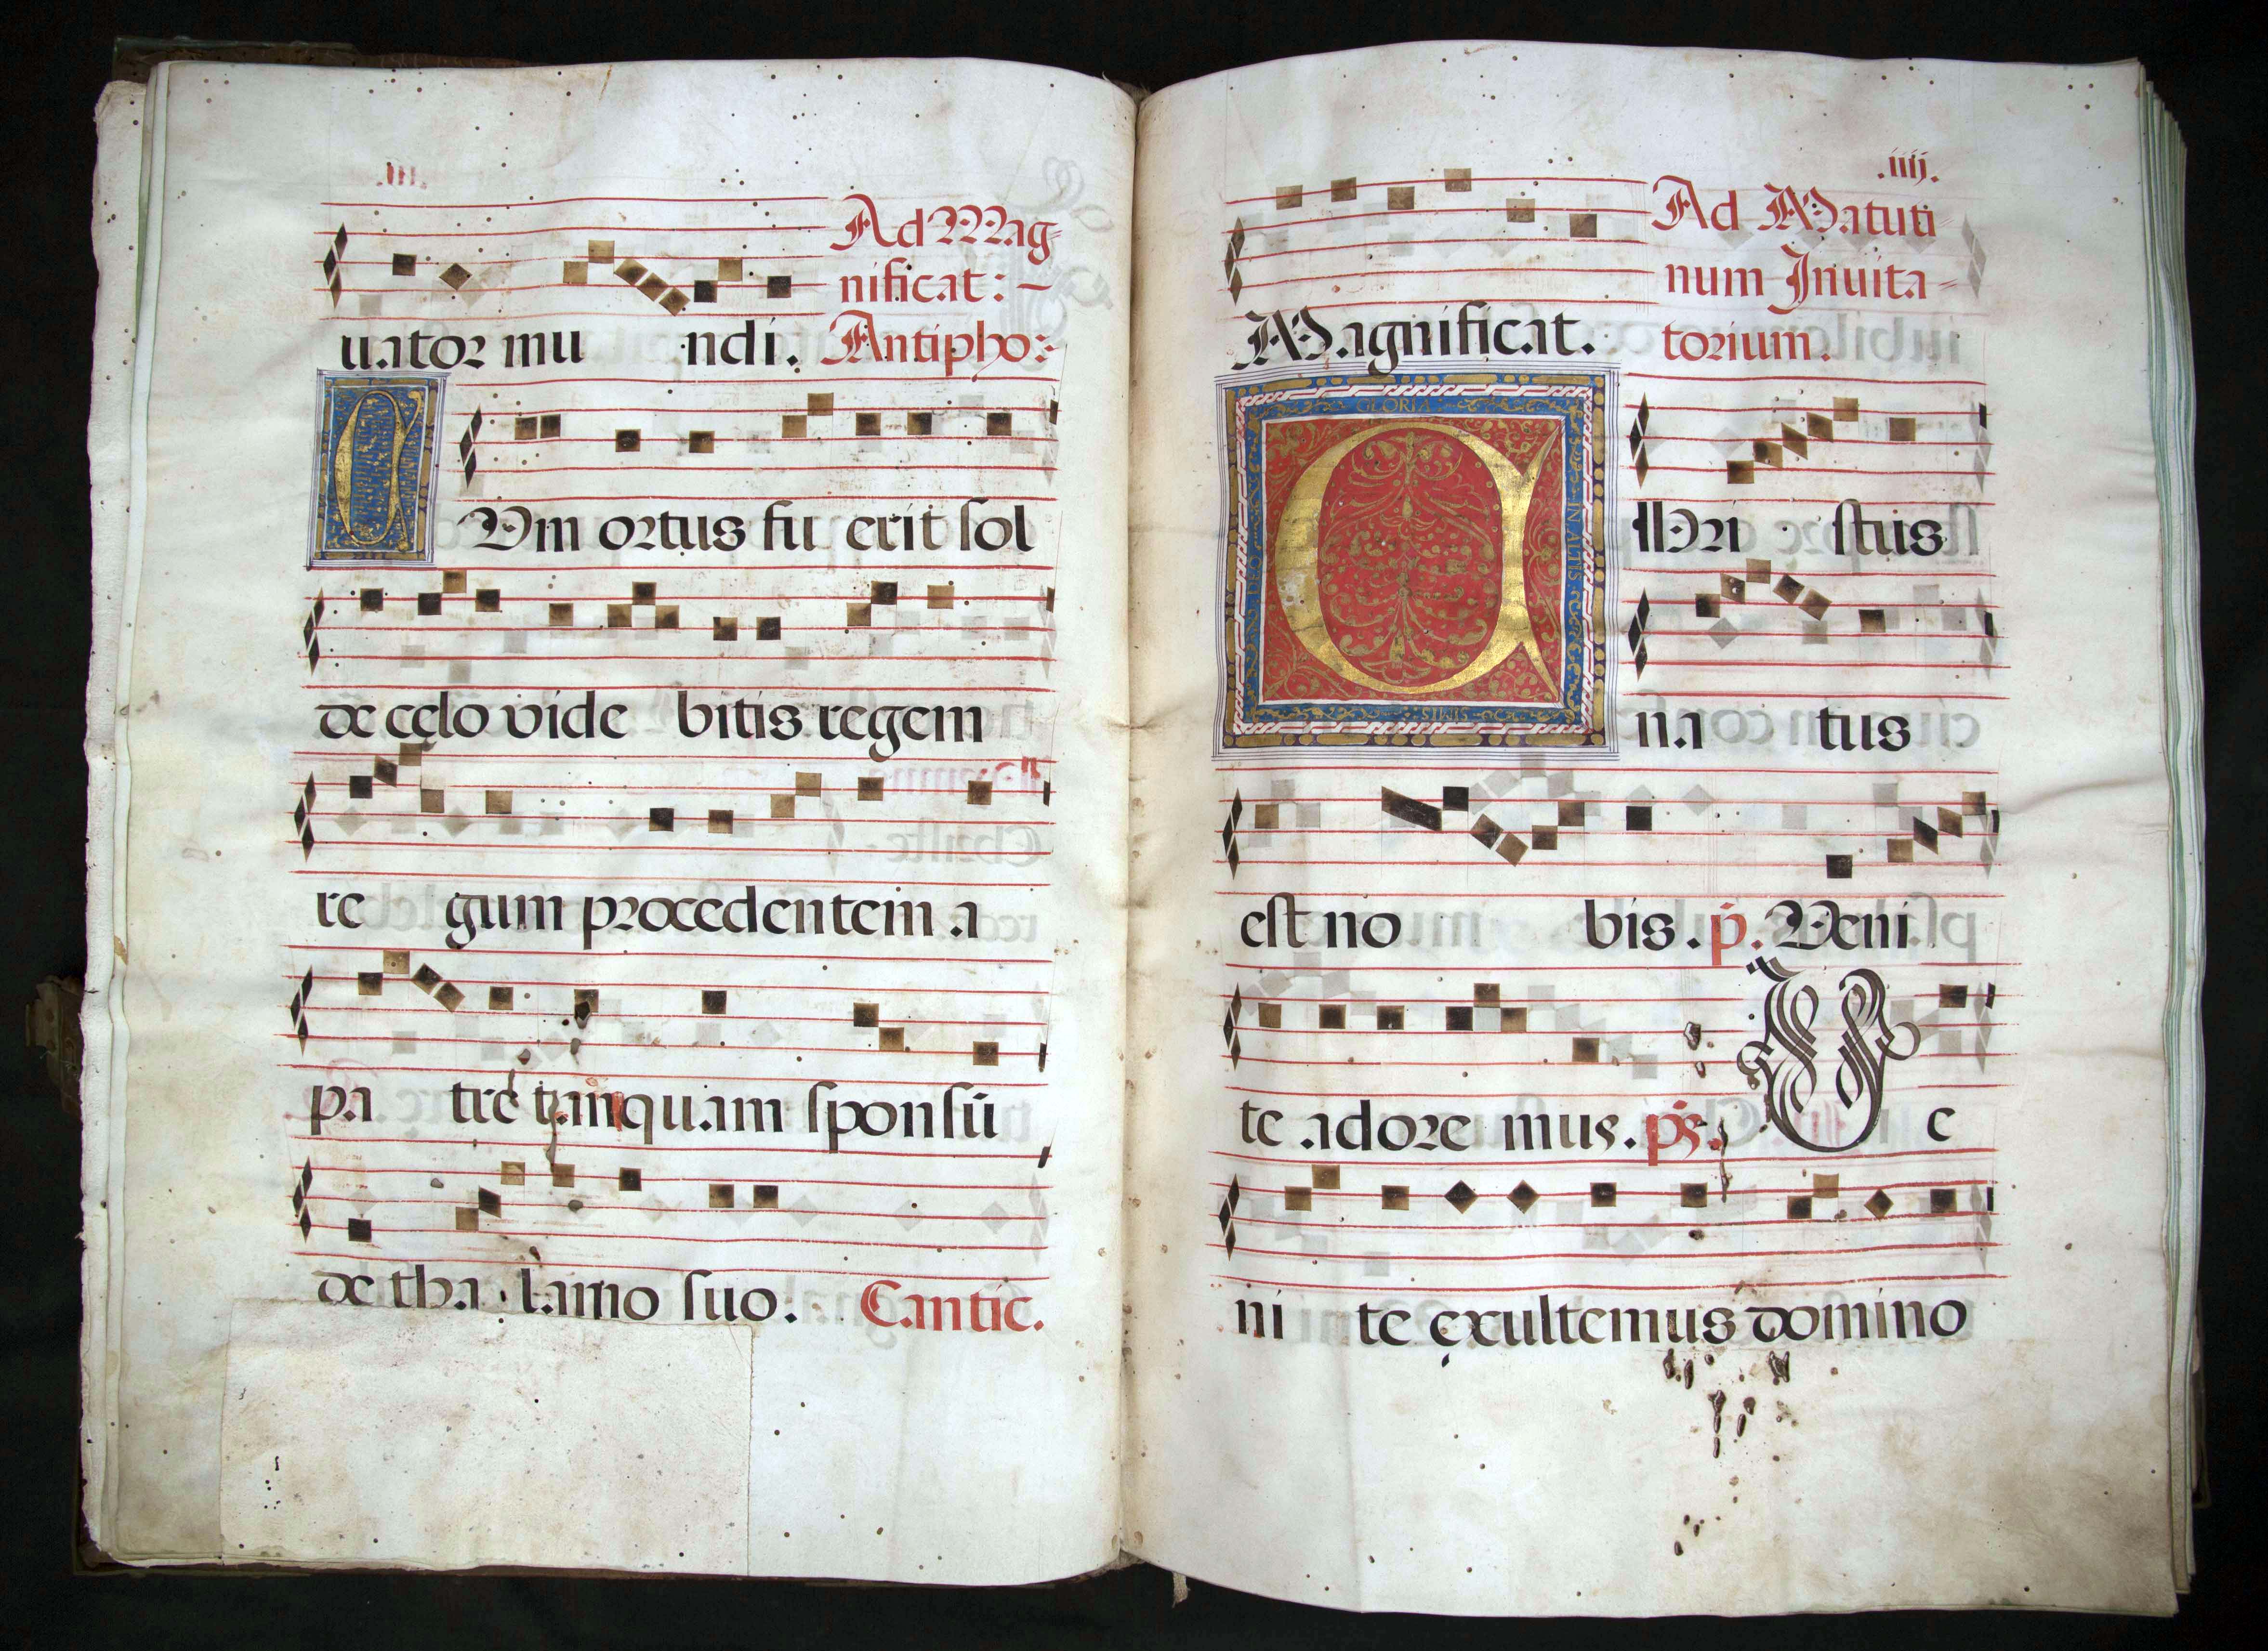 Ad Mag-
nificat: -
uator mu ndi. Antipho:
CUm ortus fu erit sol
de celo vide bitis regem
re gum procedentem a
pa tre tanquam sponsū
de tha lamo suo. Cantic.
.iiij.
Ad Matuti
num Inuita-
Magnificat. torium.
GLORIA
IN ALTIS
SIMIS
DEO
CHri stus
na tus
est no bis. p. Veni
te adore mus. ps. Ve
ni te exultemus domino